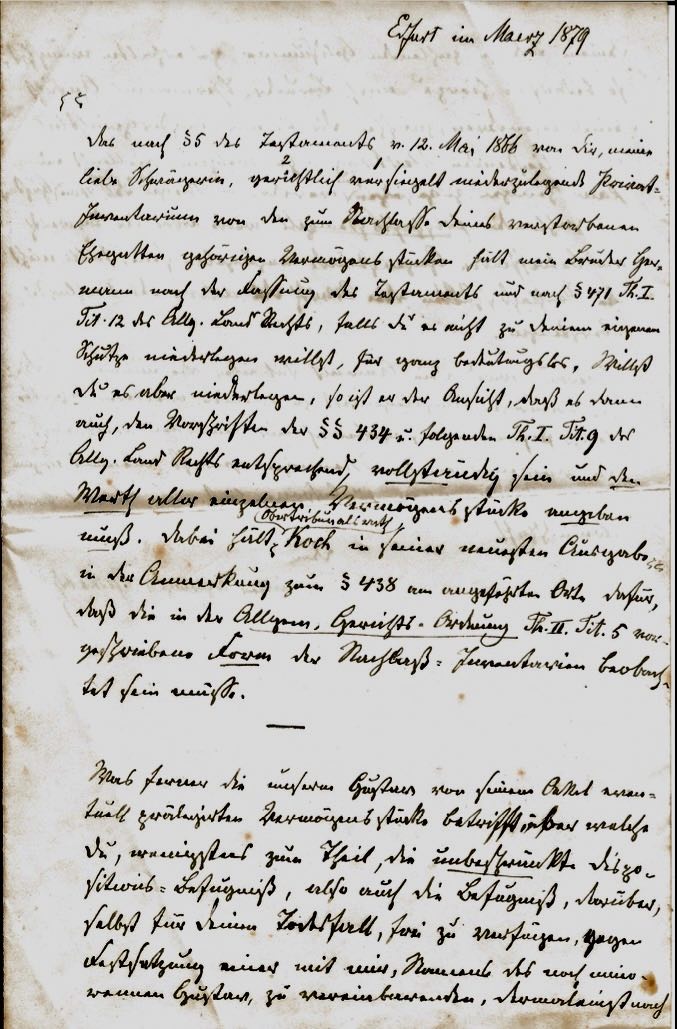 Erfurt im Maerz 1879
Das nach § 5 des Testaments v. 12. Mai 1866 von Dir, meine
liebe Schwägerin, gerichtlich versiegelt niederzulegende Privat=
Inventarium von den zum Nachlasse Deines verstorbenen
Ehegatten gehörigen Vermögensstücken hält mein Bruder Her-
mann nach der Fassung des Testaments und nach § 471 Th. I.
Tit. 12 des Allg. Land Rechts, falls Du es nicht zu Deinem eigenen
Schutze niederlegen willst, für ganz bedeutungslos. Willst
Du es aber niederlegen, so ist er der Ansicht, daß es dann
auch, den Vorschriften der §§ 434 u. folgenden Th. I. Tit. 9 des
Allg. Land Rechts entsprechend, vollständig sein und den
Werth aller einzelnen Vermögensstücke angeben
muß. Dabei hält Obertribunalsrath Koch in seiner neuesten Ausgabe
in der Anmerkung zum § 438 am angeführten Orte dafür,
daß die in der Allgem. Gerichts-Ordnung Th. II. Tit. 5 vor-
geschriebene Form der Nachlaß=Inventarien beobach-
tet sein müsse.
Was ferner die unserm Gustav von seinem Onkel even=
tuell prälegirten Vermögensstücke betrifft, über welche
Du, wenigstens zum Theil, die unbeschränkte Dispo-
sitions=Befugniß, also auch die Befugniß, darüber,
selbst für Deinen Todesfall, frei zu verfügen, gegen
Festsetzung einer mit mir, Namens des noch mino-
rennen Gustav, zu vereinbarenden, dermaleinst nach